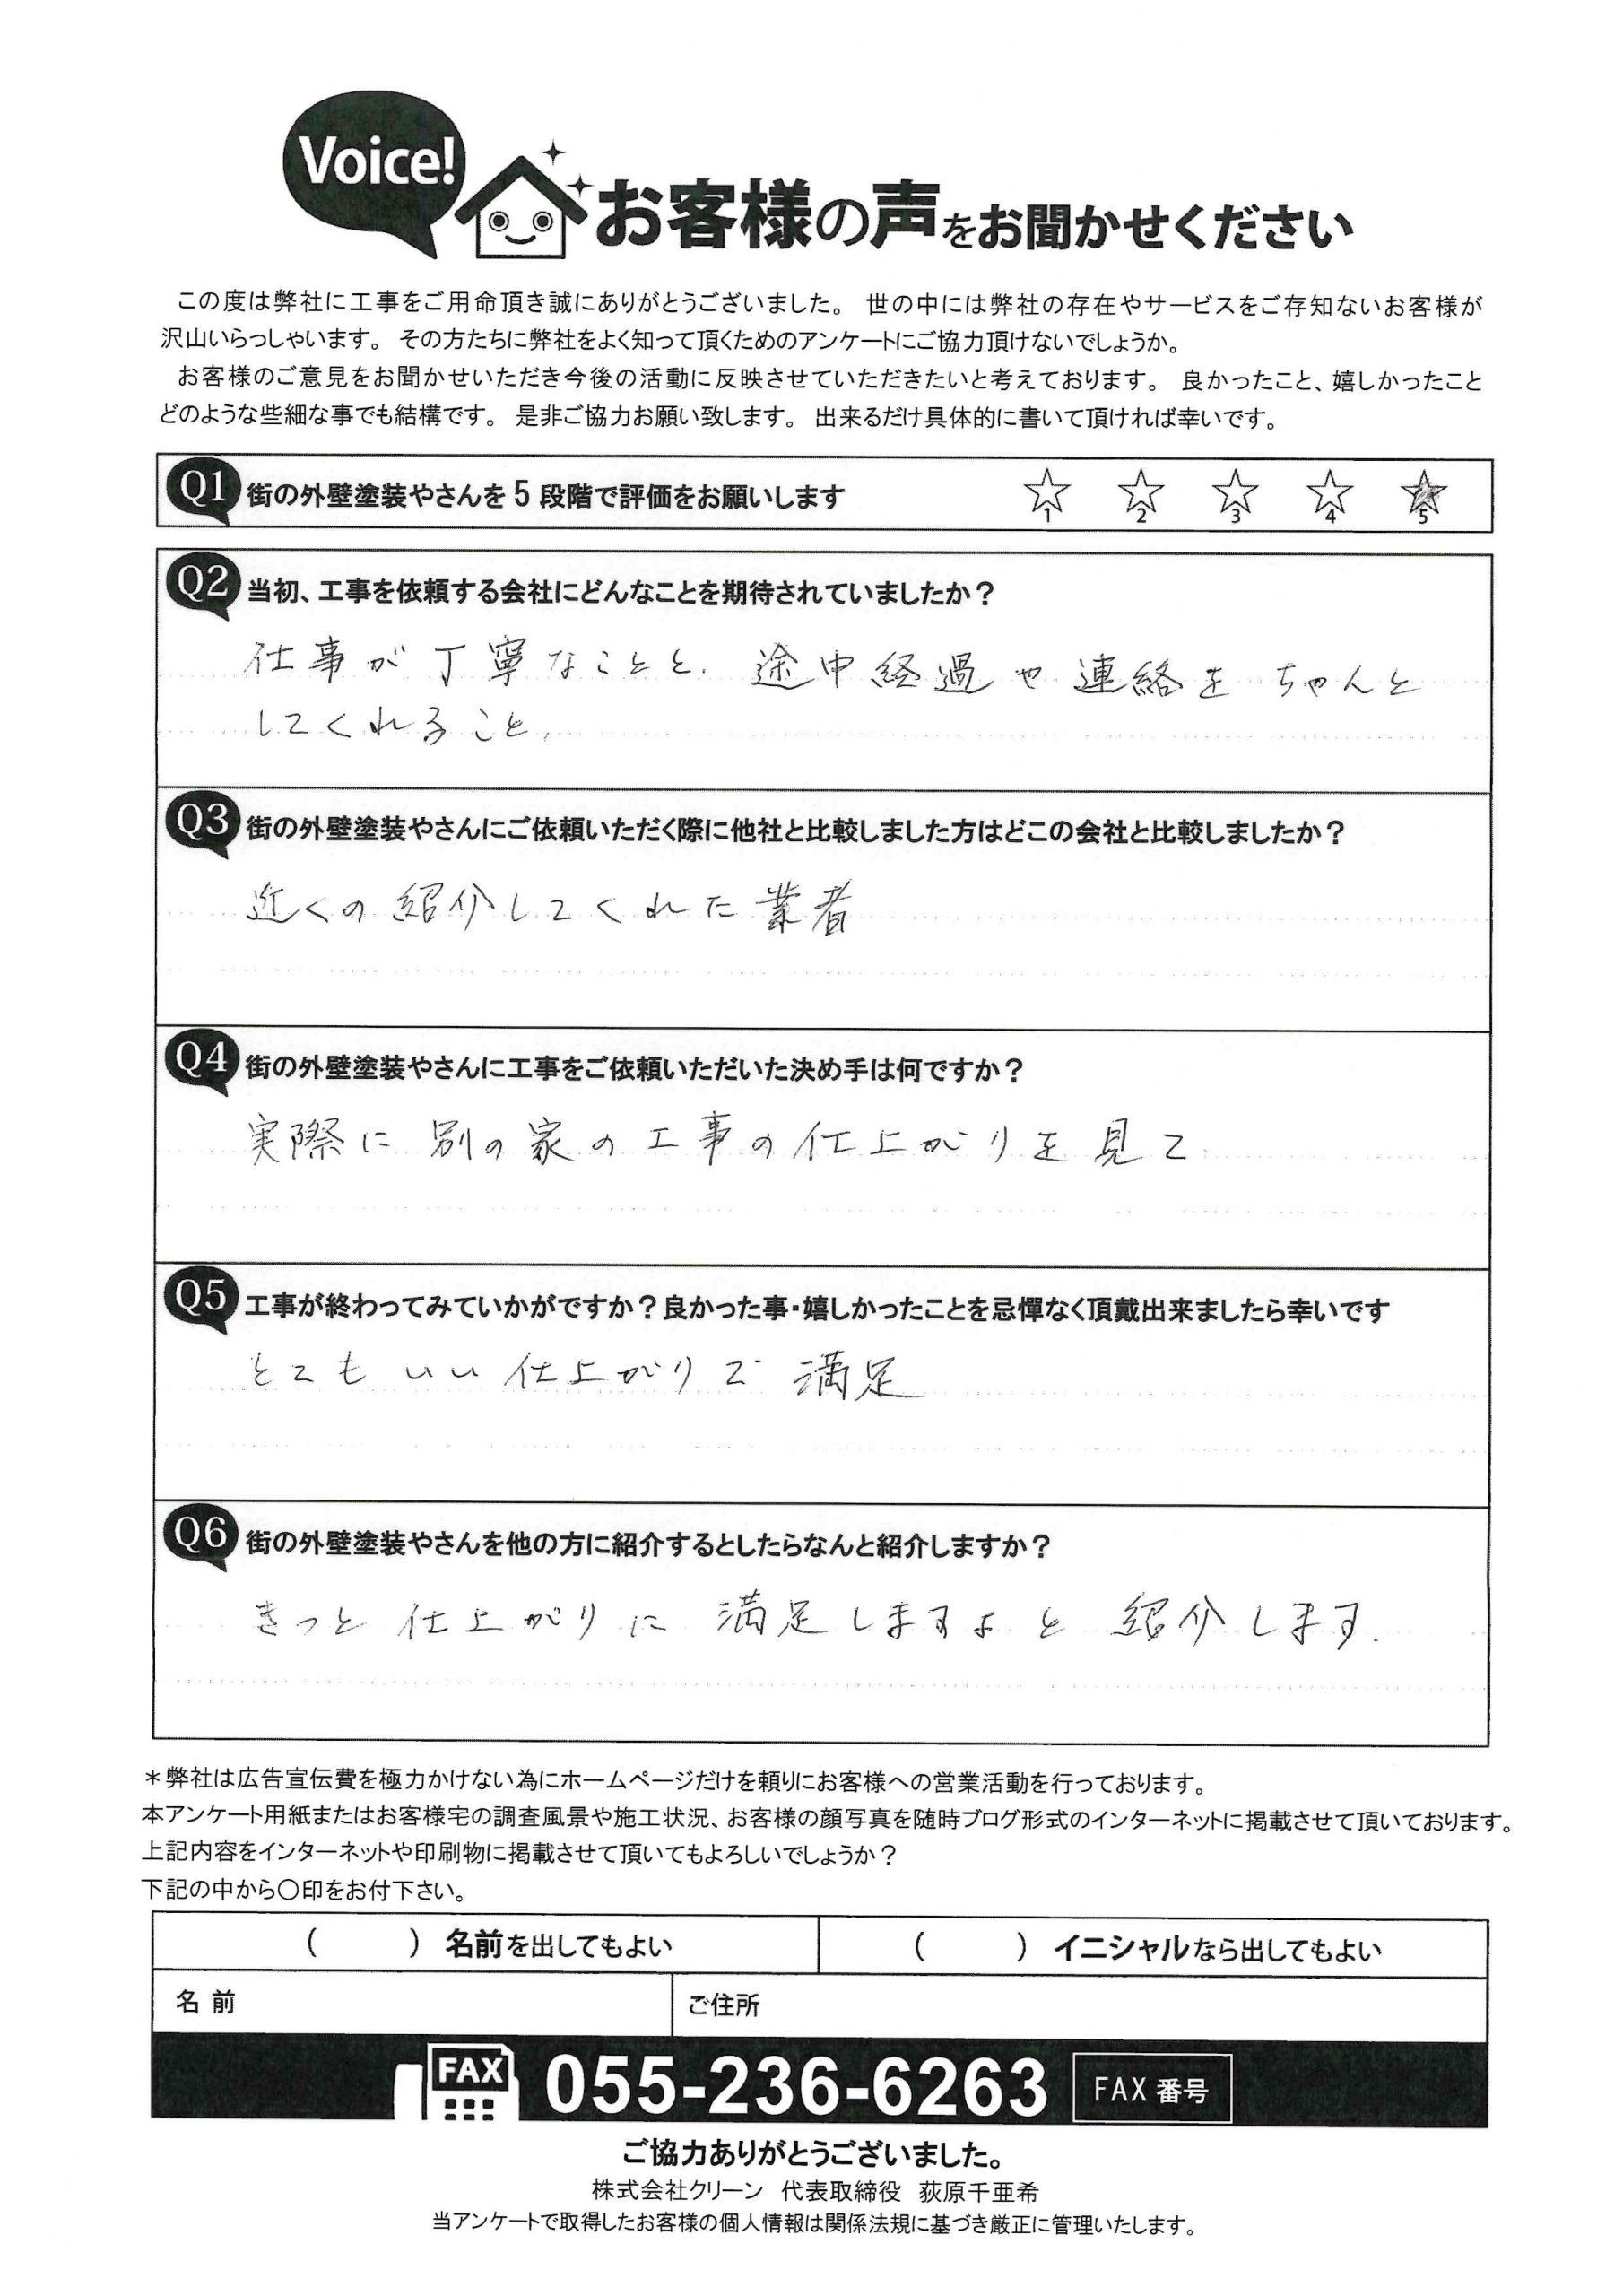 Voice!
お客様の声をお聞かせください
この度は弊社に工事をご用命頂き誠にありがとうございました。 世の中には弊社の存在やサービスをご存知ないお客様が
沢山いらっしゃいます。 その方たちに弊社をよく知って頂くためのアンケートにご協力頂けないでしょうか。
お客様のご意見をお聞かせいただき今後の活動に反映させていただきたいと考えております。 良かったこと、嬉しかったこと
どのような些細な事でも結構です。 是非ご協力お願い致します。 出来るだけ具体的に書いて頂ければ幸いです。
Q1 街の外壁塗装やさんを5段階で評価をお願いします ☆1 ☆2 ☆3 ☆4 ★5
Q2 当初、工事を依頼する会社にどんなことを期待されていましたか？
仕事が丁寧なことと、途中経過や連絡をちゃんと
してくれること、
Q3 街の外壁塗装やさんにご依頼いただく際に他社と比較しました方はどこの会社と比較しましたか？
近くの紹介してくれた業者
Q4 街の外壁塗装やさんに工事をご依頼いただいた決め手は何ですか？
実際に別の家の工事の仕上がりを見て
Q5 工事が終わってみていかがですか？良かった事・嬉しかったことを忌憚なく頂戴出来ましたら幸いです
とてもいい仕上がりで満足
Q6 街の外壁塗装やさんを他の方に紹介するとしたらなんと紹介しますか？
きっと仕上がりに満足しますよと紹介します.
＊弊社は広告宣伝費を極力かけない為にホームページだけを頼りにお客様への営業活動を行っております。
本アンケート用紙またはお客様宅の調査風景や施工状況、お客様の顔写真を随時ブログ形式のインターネットに掲載させて頂いております。
上記内容をインターネットや印刷物に掲載させて頂いてもよろしいでしょうか？
下記の中から〇印をお付下さい。
（　　　）名前を出してもよい （　　　）イニシャルなら出してもよい
名 前 ご住所
FAX 055-236-6263 FAX 番号
ご協力ありがとうございました。
株式会社クリーン 代表取締役 荻原千亜希
当アンケートで取得したお客様の個人情報は関係法規に基づき厳正に管理いたします。